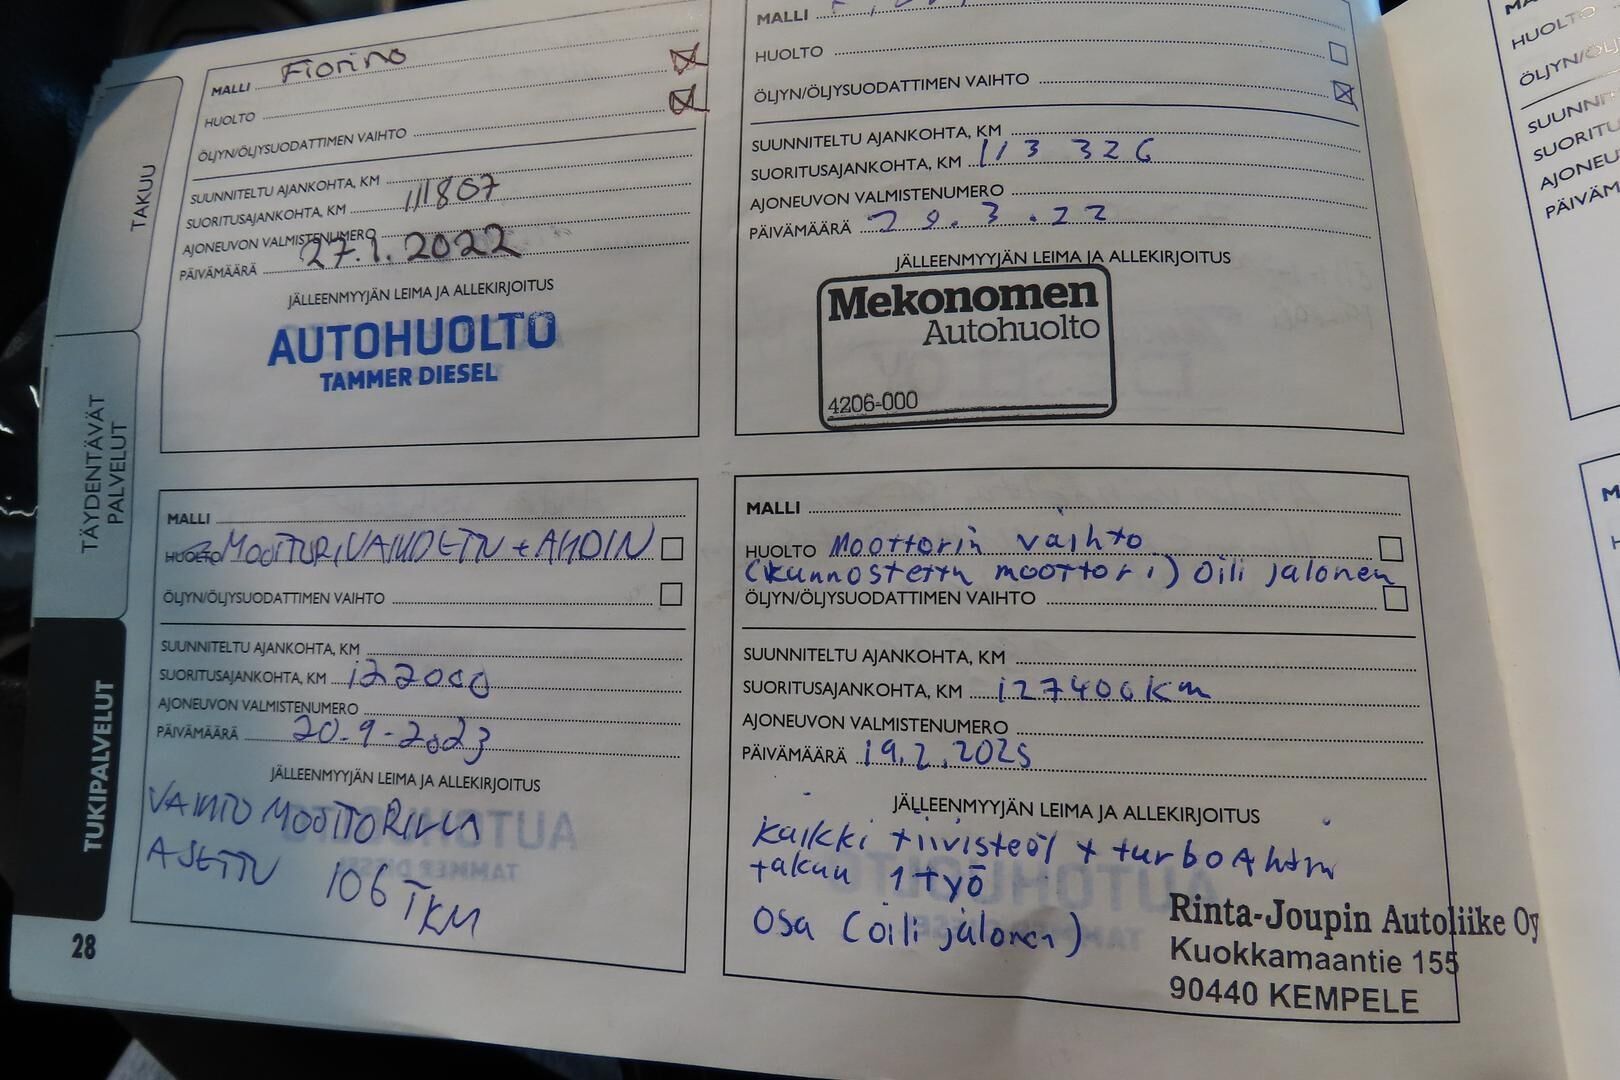 TAKUU
TÄYDENTÄVÄT
PALVELUT
TUKIPALVELUT
28
MALLI Fiorino
HUOLTO
ÖLJYN/ÖLJYSUODATTIMEN VAIHTO
SUUNNITELTU AJANKOHTA, KM
SUORITUSAJANKOHTA, KM 111807
AJONEUVON VALMISTENUMERO
PÄIVÄMÄÄRÄ 27.1.2022
JÄLLEENMYYJÄN LEIMA JA ALLEKIRJOITUS
AUTOHUOLTO
TAMMER DIESEL
MALLI
HUOLTO
ÖLJYN/ÖLJYSUODATTIMEN VAIHTO
SUUNNITELTU AJANKOHTA, KM
SUORITUSAJANKOHTA, KM 113 326
AJONEUVON VALMISTENUMERO
PÄIVÄMÄÄRÄ 29.3.22
JÄLLEENMYYJÄN LEIMA JA ALLEKIRJOITUS
Mekonomen
Autohuolto
4206-000
MALLI
HUOLTO MOOTTORI VAIHDETTU + AHDIN
ÖLJYN/ÖLJYSUODATTIMEN VAIHTO
SUUNNITELTU AJANKOHTA, KM
SUORITUSAJANKOHTA, KM 122000
AJONEUVON VALMISTENUMERO
PÄIVÄMÄÄRÄ 20.9-2023
JÄLLEENMYYJÄN LEIMA JA ALLEKIRJOITUS
VAIHTO MOOTTORILLA
AJETTU 106 TKM
MALLI
HUOLTO Moottorin vaihto
(kunnostettu moottori) Oili jalonen
ÖLJYN/ÖLJYSUODATTIMEN VAIHTO
SUUNNITELTU AJANKOHTA, KM
SUORITUSAJANKOHTA, KM 127400km
AJONEUVON VALMISTENUMERO
PÄIVÄMÄÄRÄ 19.2.2025
JÄLLEENMYYJÄN LEIMA JA ALLEKIRJOITUS
kaikki tiivisteöt + turbo Ahtin
takuu 1 työ
osa (oili jalonen)
Rinta-Joupin Autoliike Oy
Kuokkamaantie 155
90440 KEMPELE
HUOLTO